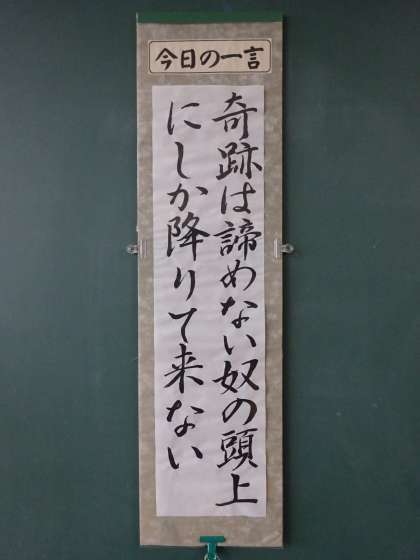 今日の一言
奇跡は諦めない奴の頭上
にしか降りて来ない